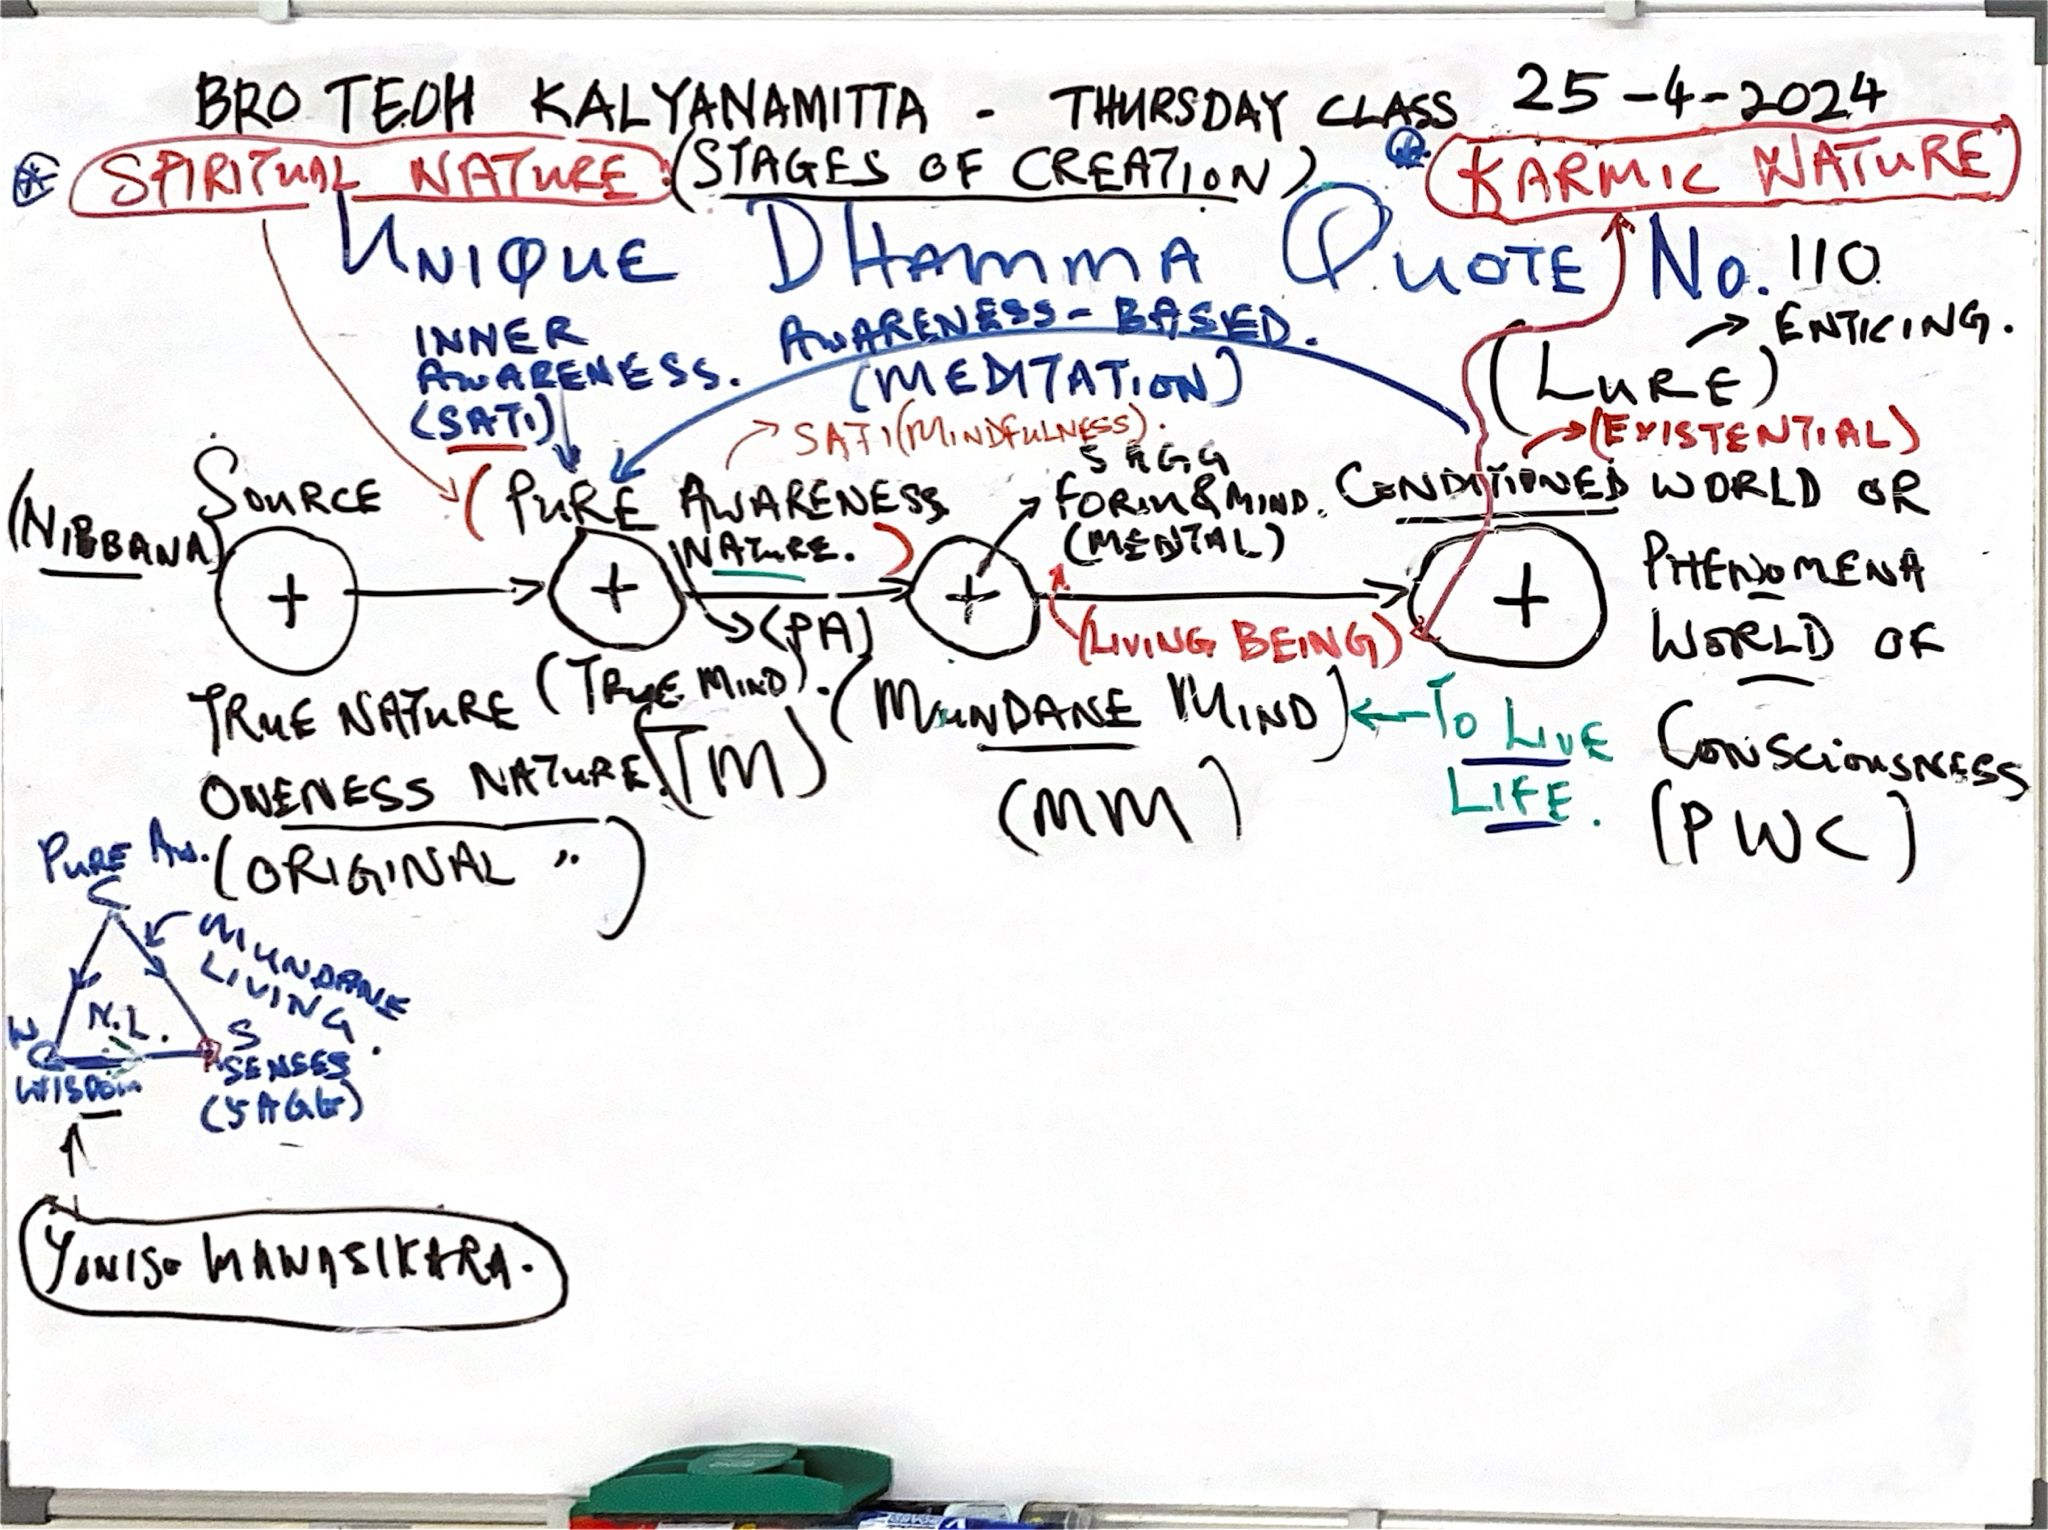 BRO TEOH KALYANAMITTA - THURSDAY CLASS 25-4-2024
SPIRITUAL NATURE: (STAGES OF CREATION) KARMIC NATURE
UNIQUE DHAMMA QUOTE No. 110
INNER
AWARENESS.
(SATI)
AWARENESS-BASED.
(MEDITATION)
SATI (MINDFULNESS).
(LURE) → ENTICING.
(EXISTENTIAL)
(NIBBANA)
SOURCE
+
(PURE AWARENESS
NATURE.)
+
(PA)
5 AGG
FORM & MIND.
(MENTAL)
+
(LIVING BEING)
CONDITIONED WORLD OR
+
PHENOMENA
WORLD OF
CONSCIOUSNESS
(PWC)
TRUE NATURE
ONENESS NATURE.
(ORIGINAL ")
(TRUE MIND).
(TM)
(MUNDANE MIND)
(MM)
← TO LIVE
LIFE.
PURE AW.
MUNDANE
LIVING.
N.L.
W
WISDOM
S
SENSES
(5 AGG)
YONISO MANASIKARA.